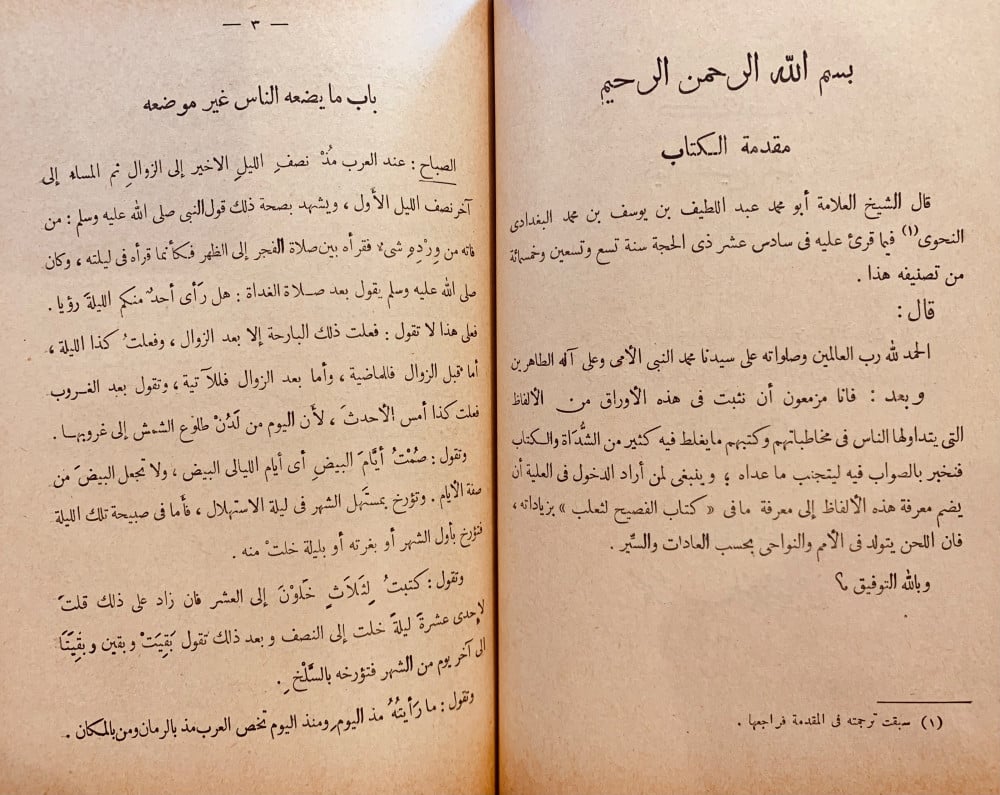 بسم الله الرحمن الرحيم
مقدمة الكتاب
قال الشيخ العلامة أبو محمد عبد اللطيف بن يوسف بن محمد البغدادى
النحوى (١) فيما قرئ عليه فى سادس عشر ذى الحجة سنة تسع وتسعين وخمسمائة
من تصنيفه هذا .
قال :
الحمد لله رب العالمين وصلواته على سيدنا محمد النبى الأمى وعلى آله الطاهرين
وبعد : فانا مزمعون أن نثبت فى هذه الأوراق من الألفاظ
التى يتداولها الناس فى مخاطباتهم وكتبهم مايغلط فيه كثير من الشُّدَاة والكتاب
فنخبر بالصواب فيه ليتجنب ما عداه ؛ وينبغى لمن أراد الدخول فى العلية أن
يضم معرفة هذه الألفاظ إلى معرفة مافى « كتاب الفصيح لثعلب » بزياداته ،
فان اللحن يتولد فى الأمم والنواحى بحسب العادات والسِّير .
وبالله التوفيق ؟
(١) سبقت ترجمته فى المقدمة فراجعها .
— ٣ —
باب ما يضعه الناس غير موضعه
الصباح : عند العرب مُذْ نصفِ الليلِ الاخير إلى الزوالِ ثم المساء إلى
آخر نصف الليل الأول ، ويشهد بصحة ذلك قول النبى صلى الله عليه وسلم : من
فاته من وِرْدِهِ شىء فقرأه بين صلاة الفجر إلى الظهر فكأنما قرأه فى ليلته ، وكان
صلى الله عليه وسلم يقول بعد صلاة الغداة : هل رَأى أحدٌ منكم الليلةَ رؤيا .
فعلى هذا لا تقول : فعلت ذلك البارحة إلا بعد الزوال ، وفعلتُ كذا الليلة ،
أما قبل الزوال فللماضية ، وأما بعد الزوال فللآتية ، وتقول بعد الغروب
فعلت كذا أمس الأحدثَ ، لأن اليوم من لَدُنْ طلوع الشمش إلى غروبها .
وتقول : صُمْتُ أيَّامَ البيضِ أى أيام الليالى البيض ، ولا تجعل البيضَ من
صفة الأيام . وتؤرخ بمستهل الشهر فى ليلة الاستهلال ، فأما فى صبيحة تلك الليلة
فتؤرخ بأول الشهر أو بغرته أو بليلة خلتْ منه .
وتقول : كتبتُ لِثَلاَثٍ خَلَوْنَ إلى العشر فان زاد على ذلك قلتَ
لإحدى عشرةَ ليلةً خلت إلى النصف وبعد ذلك تقول بَقِيَتْ وبقين وبقِيَتَا
الى آخر يوم من الشهر فتؤرخه بالسَّلْخِ .
وتقول : ما رَأيتُهُ مذ اليوم ومنذ اليوم تخص العرب مذ بالزمان ومن بالمكان .